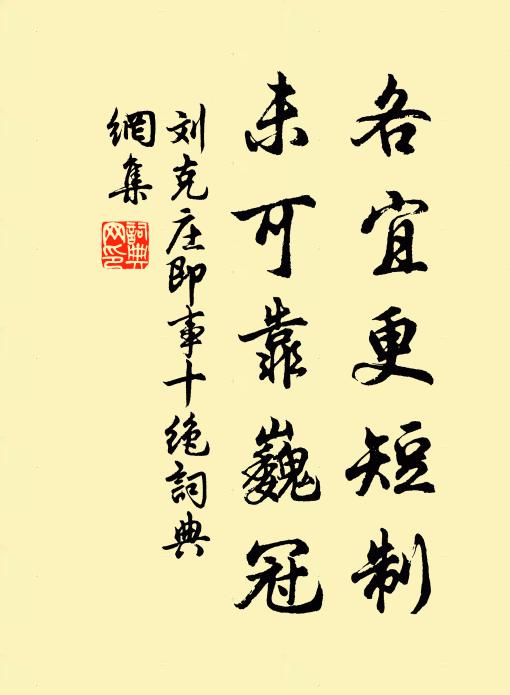 各宜更短制
未可靠巍冠
刘克庄即事十绝詞典
網集
詞典網印